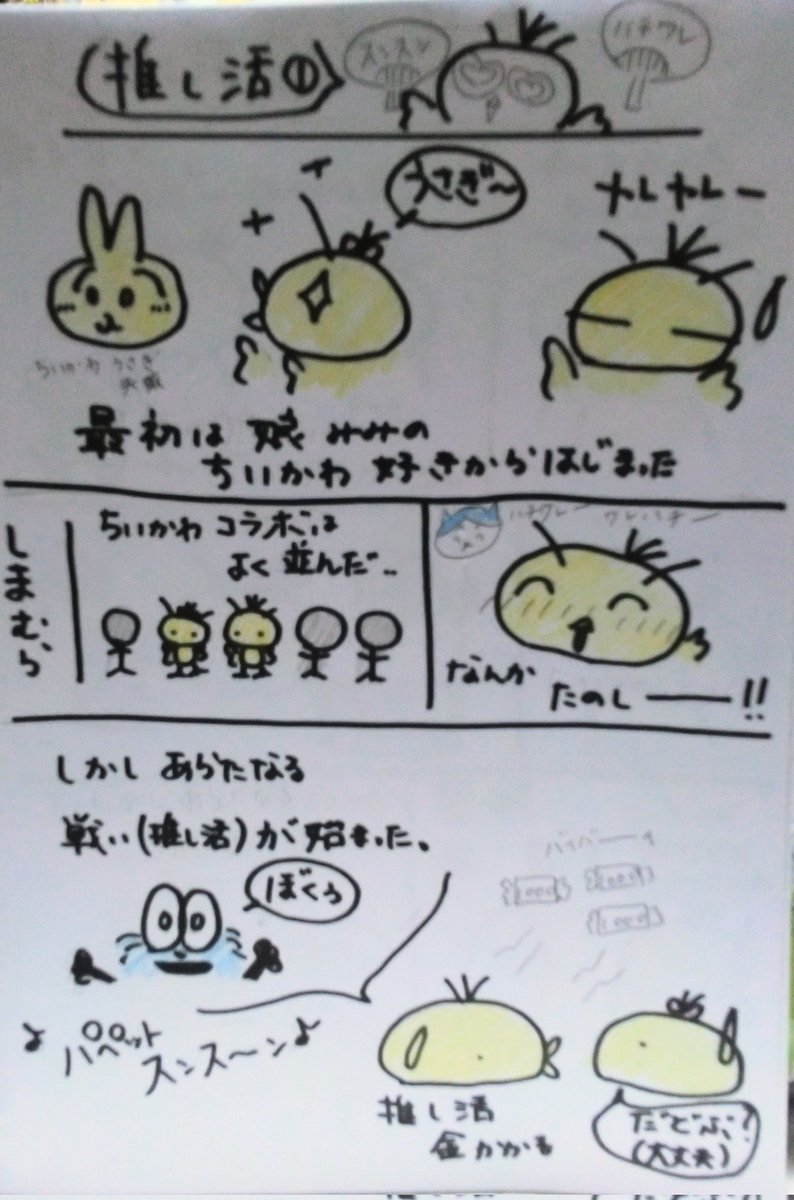 推し活①
スンスン
ハチワレ
うさぎ〜
ヤレヤレー
ちいかわ うさぎ
最初は 娘 みみの
ちいかわ 好きからはじまった
しまむら
ちいかわ コラボは
よく 並んだ‥
ハチワレー
ワレハチー
なんか
たのしー!!
しかし あらたなる
戦い(推し活)が始まった。
ぼくら
バイバーイ
1000
1000
1000
♪パペット
スンス〜ン♪
推し活
金かかる
だどぶ?
(大丈夫)